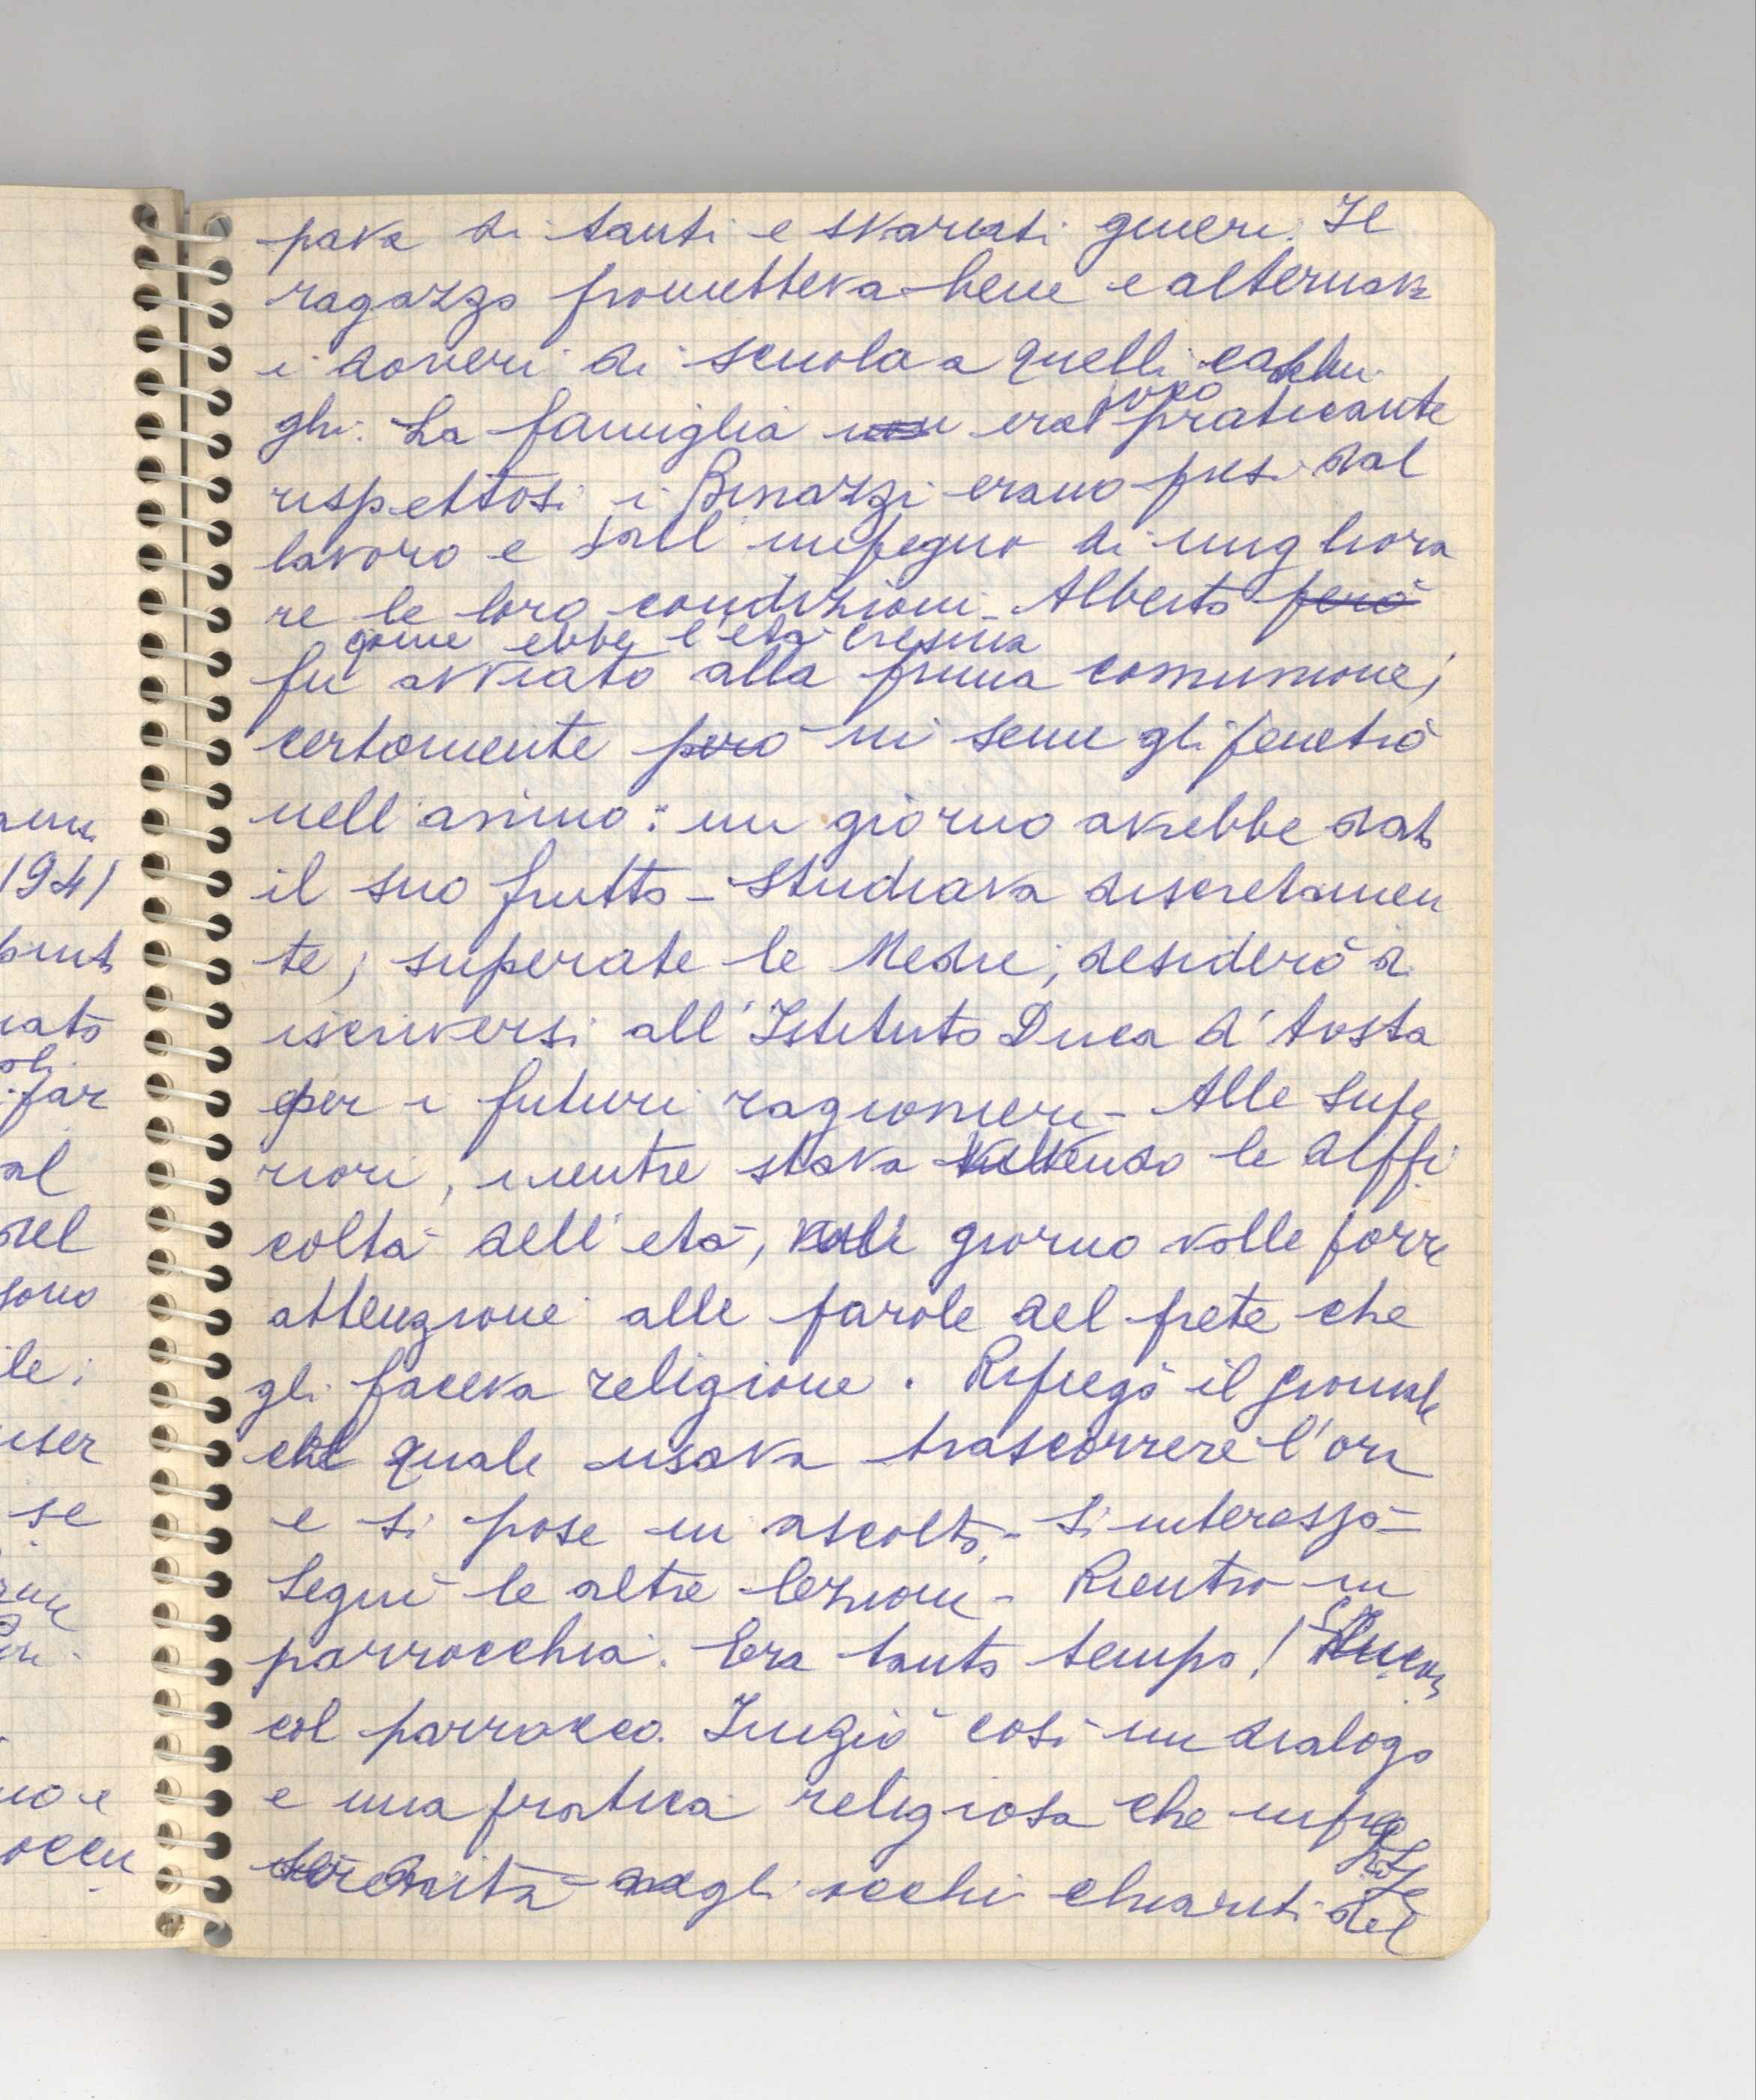 pava di tanti e svariati generi. Il
ragazzo prometteva bene e alternava
i doveri di scuola a quelli casalin
ghi. La famiglia non era poco praticante
rispettosi i Binazzi erano presi dal
lavoro e dall'impegno di migliora
re le loro condizioni - Alberto però
come ebbe l'età cresima
fu avviato alla prima comunione;
certamente però un seme gli penetrò
nell'animo: un giorno avrebbe dato
il suo frutto - Studiava discretamen
te; superate le Medie, desiderò di
iscriversi all'Istituto Duca d'Aosta
per i futuri ragionieri - Alle Supe
riori, mentre stava vivendo le diffi
coltà dell'età, giorno volle porre
attenzione alle parole del prete che
gli faceva religione. Ripiegò il giornale
col quale usava trascorrere l'ora
e si pose in ascolto - Si interessò -
Seguì le altre lezioni - Rientrò in
parrocchia. Era tanto tempo!
col parroco. Iniziò così un dialogo
e una pratica religiosa che
serenità negli occhi chiari del
anni
1941
punto
iato
oli
far
al
nel
sono
ile;
iser
se
no e
occu